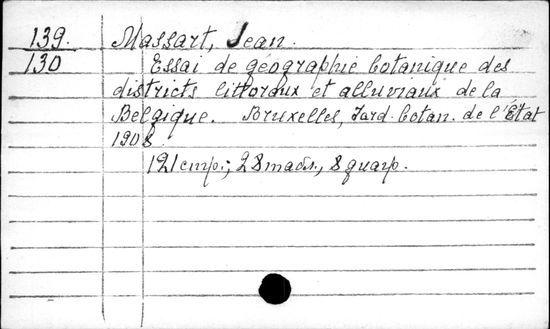 139. Massart, Jean.
130 Essai de géographie botanique des
districts littoraux et alluviaux de la
Belgique. Bruxelles, Jard. botan. de l'État
1908
121 стр.; 28 табл., 8 диагр.